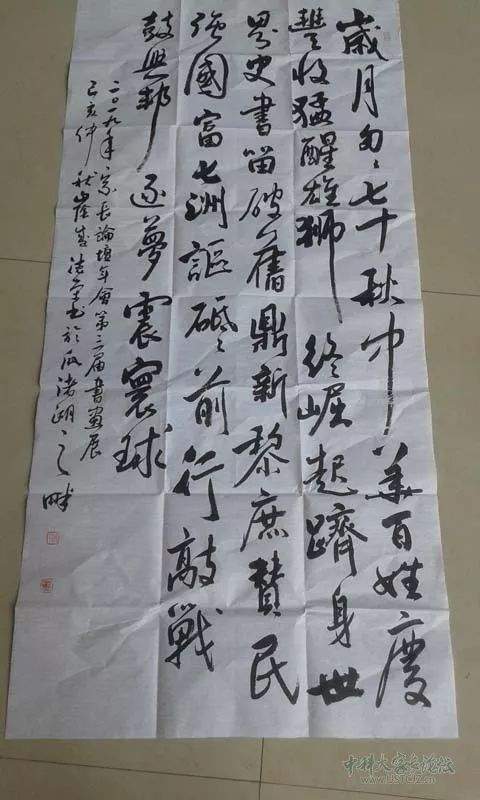 歲月匆々七十秋中華百姓慶
豐收猛醒雄獅終崛起躋身世
界史書留破舊鼎新黎庶贊民
強國富七洲謳砥々前行敲戰
鼓興邦逐夢震寰球
二〇一九年宗長論壇年會第三屆書畫展
己亥仲秋書於瓜渚湖之畔